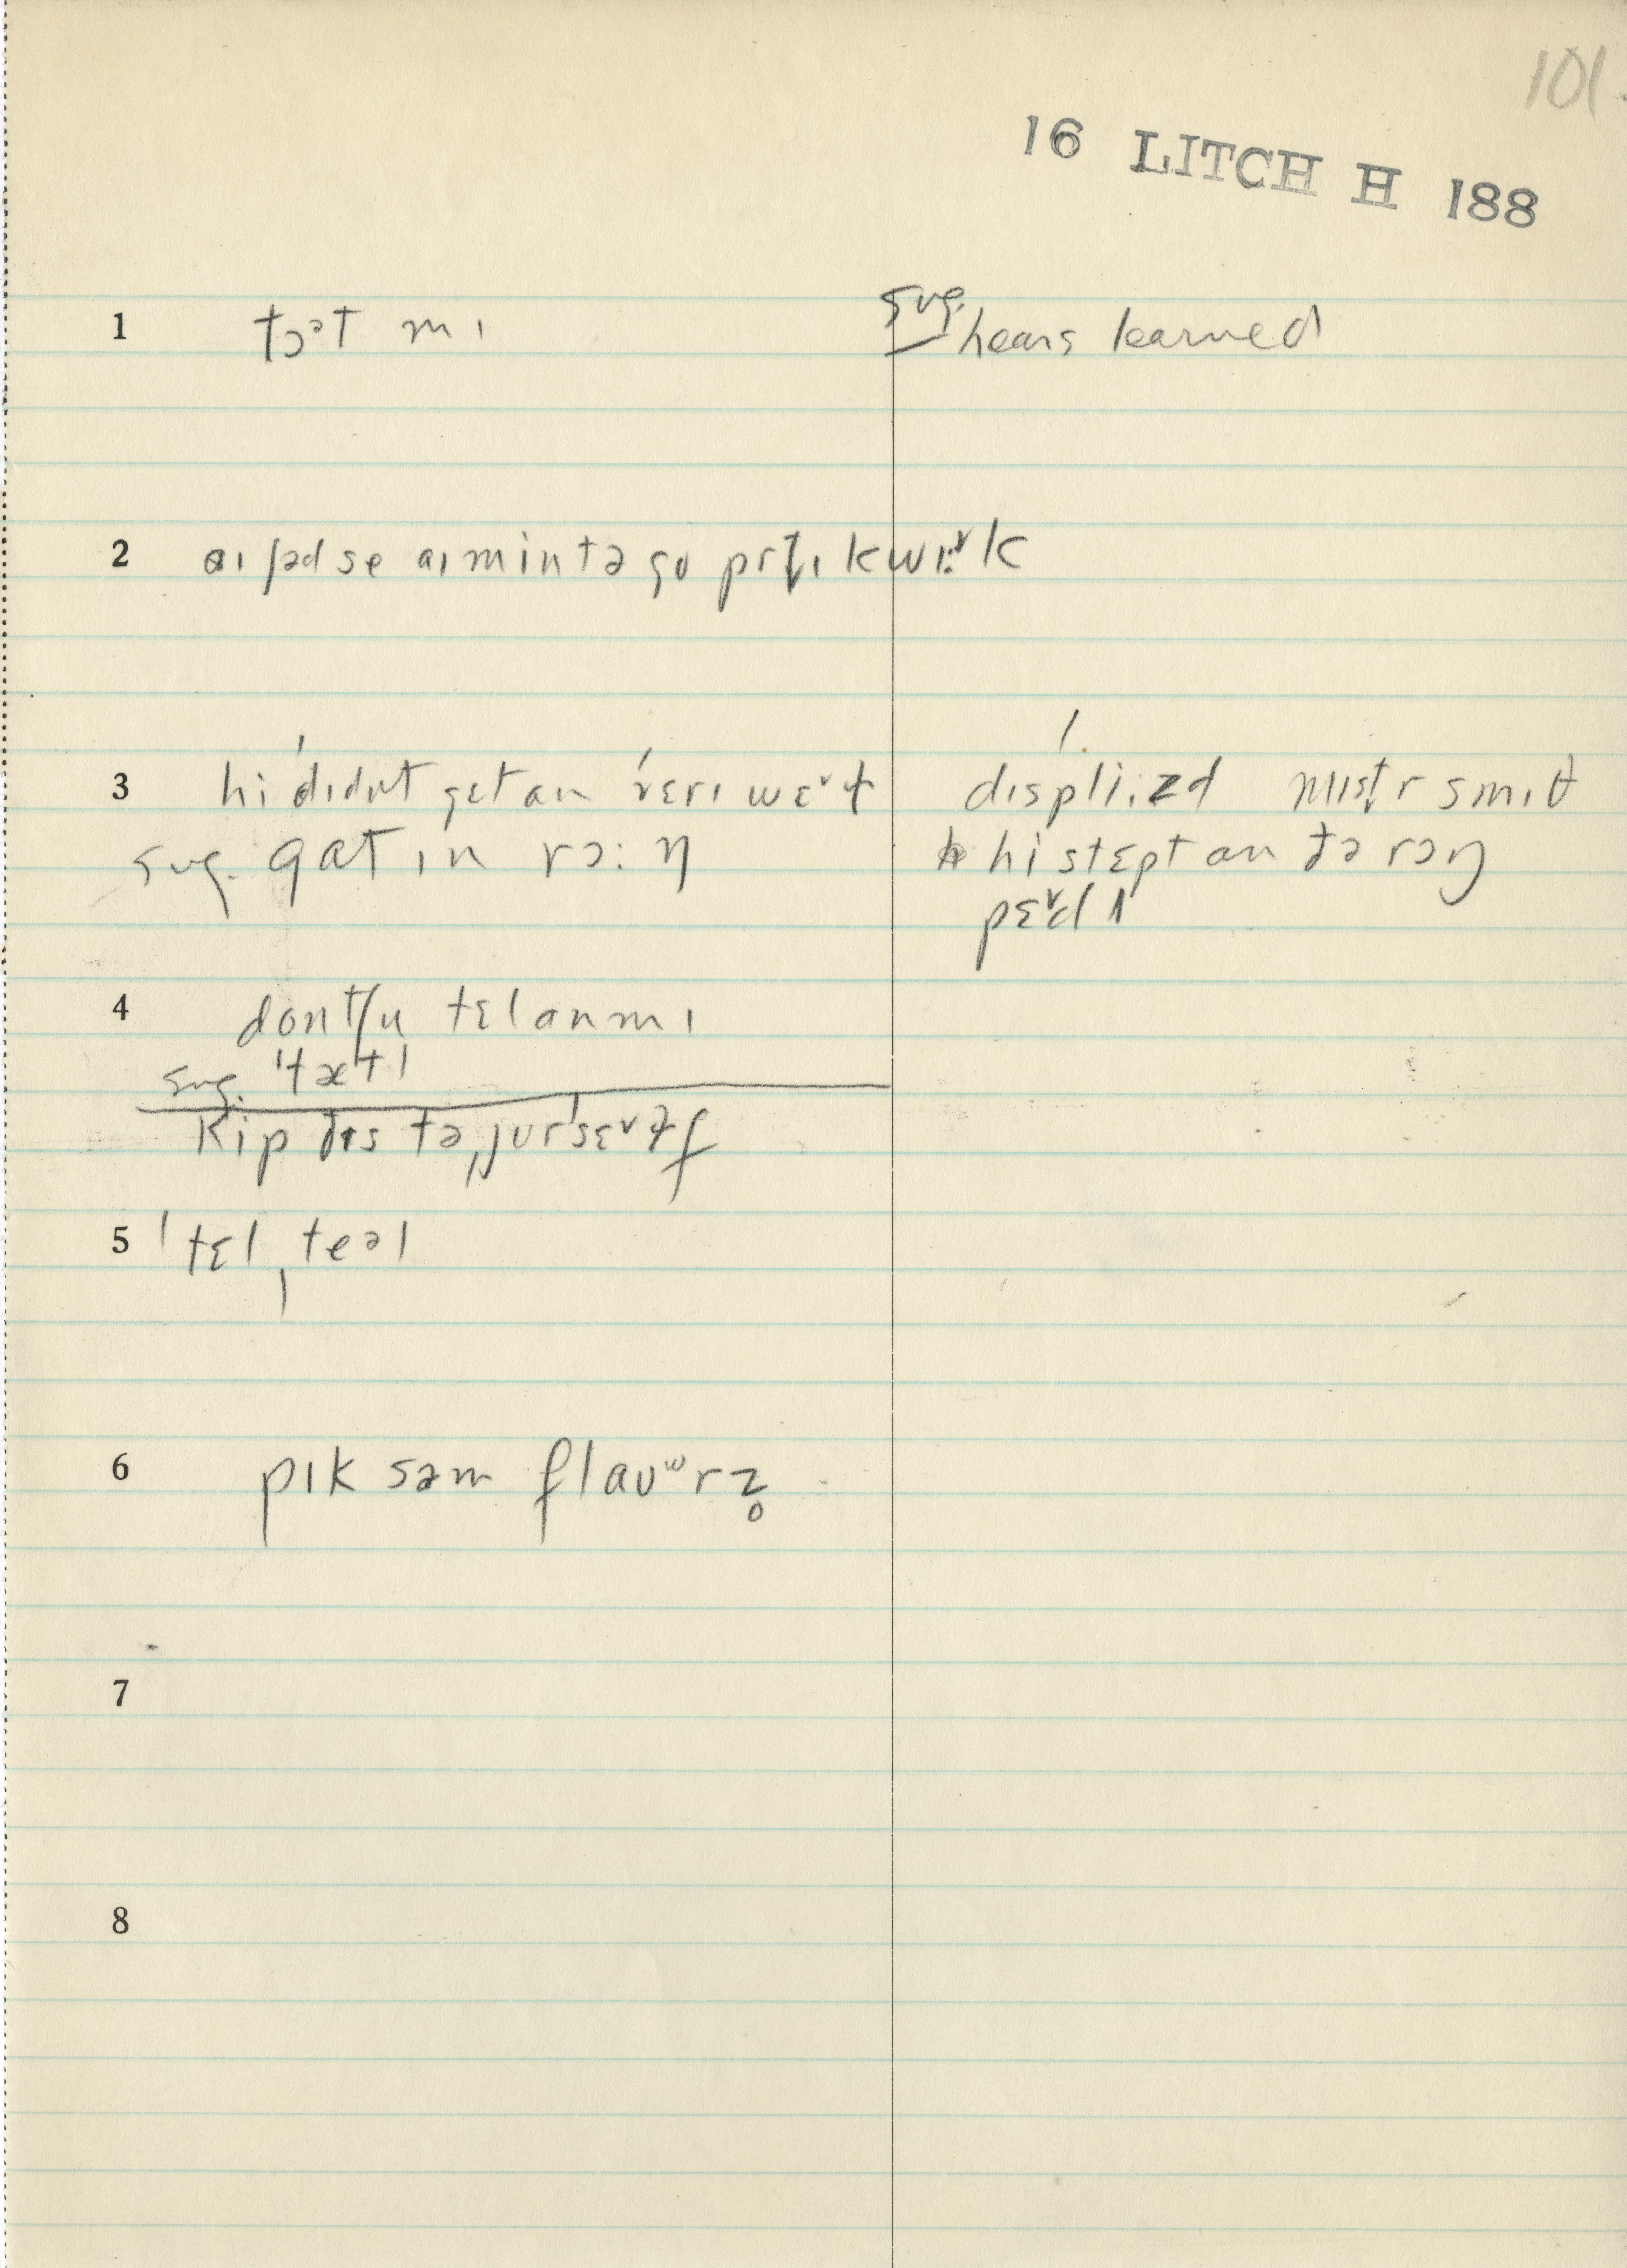 101.
16 LITCH H 188
1 tɔᵊt mɪ
sug. hears learned
2 aɪ ʃəd se aɪ min tə go prt̬ɪ kwɪ:ᵛk
3 hi dɪdn̩t get an ˈverɪ wɛᵛɫ
sug. gat ɪn rɔ:ŋ
dɪspli:zd mɪst̬r smɪθ
hi stɛpt an ðə rɔŋ
pɛᵛdl
4 dont ʃu tɛl an mɪ
sug. ˈtætl
kip ðɪs tə ˌjurˈsɛᵛɫf
5 ˈtɛlˌteəl
6 pɪk səm flaʊʷrz̥
7
8